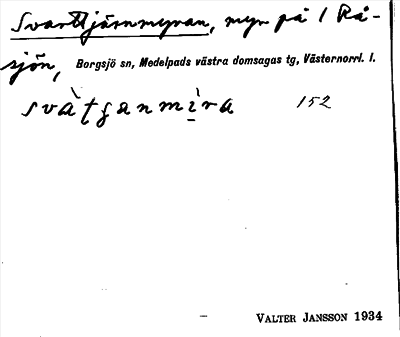 Svarttjärnmyran, myr på 1 Rå-
sjön, Borgsjö sn, Medelpads västra domsagas tg, Västernorrl. l.
152
VALTER JANSSON 1934